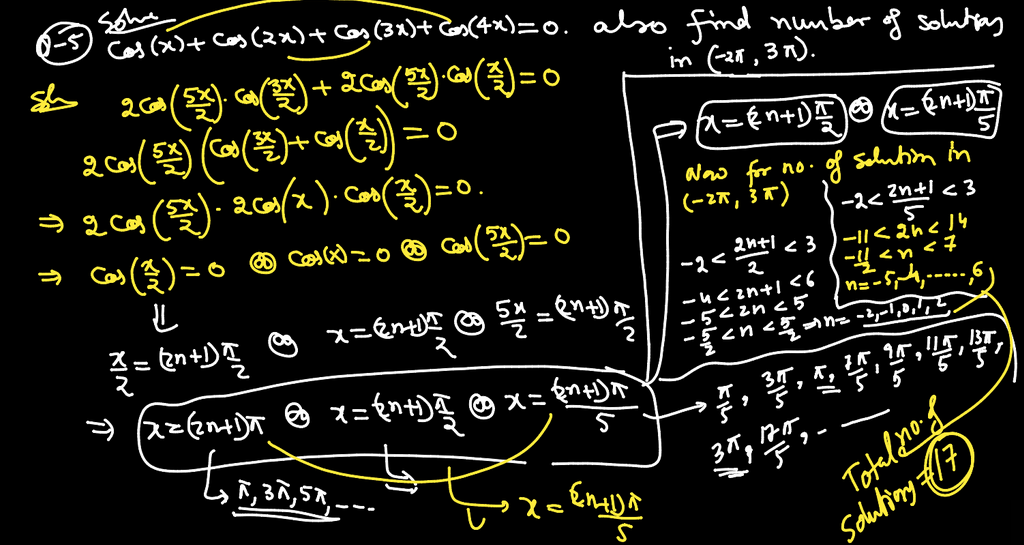 Q-5 Solve
Cos(x) + Cos(2x) + Cos(3x) + Cos(4x) = 0. also find number of solutions
in (-2π, 3π).
Soln 2Cos(5x/2)·Cos(3x/2) + 2Cos(5x/2)·Cos(x/2) = 0
2Cos(5x/2)(Cos(3x/2) + Cos(x/2)) = 0
⇒ 2Cos(5x/2)·2Cos(x)·Cos(x/2) = 0.
⇒ Cos(x/2) = 0 or Cos(x) = 0 or Cos(5x/2) = 0
⇓
x/2 = (2n+1)π/2 or x = (2n+1)π/2 or 5x/2 = (2n+1)π/2
⇒ x = (2n+1)π or x = (2n+1)π/2 or x = (2n+1)π/5
→ π, 3π, 5π, ----
→ x = (2n+1)π/5
→ x = (2n+1)π/2 or x = (2n+1)π/5
Now for no. of solution in
(-2π, 3π)
-2 < (2n+1)/2 < 3
-4 < 2n+1 < 6
-5 < 2n < 5
-5/2 < n < 5/2 ⇒ n = -2, -1, 0, 1, 2
-2 < (2n+1)/5 < 3
-11 < 2n < 14
-11/2 < n < 7
n = -5, -4, ------, 6
→ π/5, 3π/5, π, 7π/5, 9π/5, 11π/5, 13π/5,
3π, 17π/5, - ——
Total no. of
solutions = 17